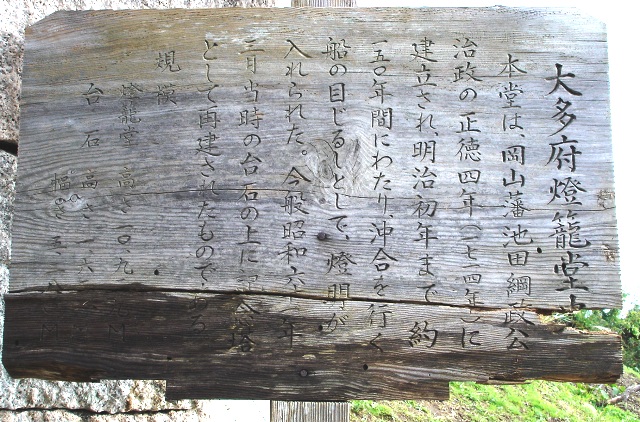 大多府燈籠堂
本堂は、岡山藩池田綱政公
治政の正徳四年(一七一四年)に
建立され、明治初年まで約
一五〇年間にわたり、沖合を行く
船の目じるしとして、燈明が
入れられた。今般昭和六十一年
三月、当時の台石の上に記念塔
として再建されたものである
規模
燈籠堂 高さ 一〇、九
台石 高さ 一、六
幅 五、八